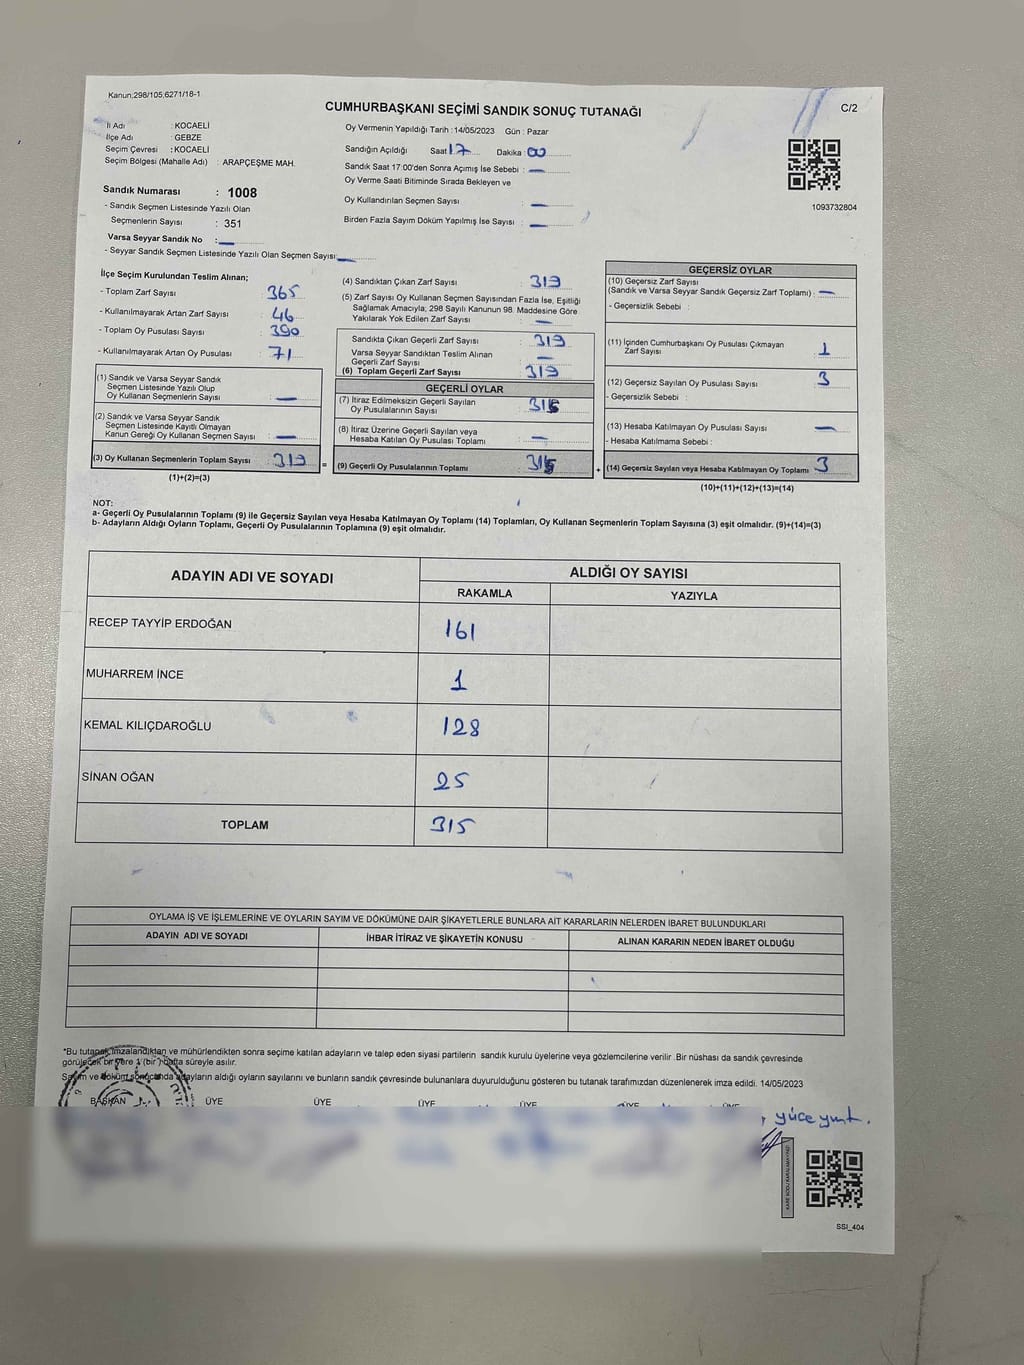 Kanun;298/105,6271/18-1
CUMHURBAŞKANI SEÇİMİ SANDIK SONUÇ TUTANAĞI
C/2
İl Adı : KOCAELİ
İlçe Adı : GEBZE
Seçim Çevresi : KOCAELİ
Seçim Bölgesi (Mahalle Adı) : ARAPÇEŞME MAH.
Sandık Numarası : 1008
- Sandık Seçmen Listesinde Yazılı Olan
Seçmenlerin Sayısı : 351
Varsa Seyyar Sandık No : —
- Seyyar Sandık Seçmen Listesinde Yazılı Olan Seçmen Sayısı: —
Oy Vermenin Yapıldığı Tarih : 14/05/2023 Gün : Pazar
Sandığın Açıldığı Saat 17 Dakika : 00
Sandık Saat 17:00'den Sonra Açımış İse Sebebi : —
Oy Verme Saati Bitiminde Sırada Bekleyen ve
Oy Kullandırılan Seçmen Sayısı : —
Birden Fazla Sayım Döküm Yapılmış İse Sayısı : —
1093732804
İlçe Seçim Kurulundan Teslim Alınan;
- Toplam Zarf Sayısı : 365
- Kullanılmayarak Artan Zarf Sayısı : 46
- Toplam Oy Pusulası Sayısı : 390
- Kullanılmayarak Artan Oy Pusulası : 71
(1) Sandık ve Varsa Seyyar Sandık
Seçmen Listesinde Yazılı Olup
Oy Kullanan Seçmenlerin Sayısı : —
(2) Sandık ve Varsa Seyyar Sandık
Seçmen Listesinde Kayıtlı Olmayan
Kanun Gereği Oy Kullanan Seçmen Sayısı : —
(3) Oy Kullanan Seçmenlerin Toplam Sayısı : 319
(1)+(2)=(3)
=
(4) Sandıktan Çıkan Zarf Sayısı : 319
(5) Zarf Sayısı Oy Kullanan Seçmen Sayısından Fazla İse, Eşitliği
Sağlamak Amacıyla; 298 Sayılı Kanunun 98. Maddesine Göre
Yakılarak Yok Edilen Zarf Sayısı : —
Sandıkta Çıkan Geçerli Zarf Sayısı : 319
Varsa Seyyar Sandıktan Teslim Alınan
Geçerli Zarf Sayısı : —
(6) Toplam Geçerli Zarf Sayısı : 319
GEÇERLİ OYLAR
(7) İtiraz Edilmeksizin Geçerli Sayılan
Oy Pusulalarının Sayısı : 315
(8) İtiraz Üzerine Geçerli Sayılan veya
Hesaba Katılan Oy Pusulası Toplamı : —
(9) Geçerli Oy Pusulalarının Toplamı : 315
+
GEÇERSİZ OYLAR
(10) Geçersiz Zarf Sayısı
(Sandık ve Varsa Seyyar Sandık Geçersiz Zarf Toplamı) : —
- Geçersizlik Sebebi :
(11) İçinden Cumhurbaşkanı Oy Pusulası Çıkmayan
Zarf Sayısı : 1
(12) Geçersiz Sayılan Oy Pusulası Sayısı : 3
- Geçersizlik Sebebi :
(13) Hesaba Katılmayan Oy Pusulası Sayısı : —
- Hesaba Katılmama Sebebi :
(14) Geçersiz Sayılan veya Hesaba Katılmayan Oy Toplamı : 3
(10)+(11)+(12)+(13)=(14)
NOT:
a- Geçerli Oy Pusulalarının Toplamı (9) ile Geçersiz Sayılan veya Hesaba Katılmayan Oy Toplamı (14) Toplamları, Oy Kullanan Seçmenlerin Toplam Sayısına (3) eşit olmalıdır. (9)+(14)=(3)
b- Adayların Aldığı Oyların Toplamı, Geçerli Oy Pusulalarının Toplamına (9) eşit olmalıdır.
ADAYIN ADI VE SOYADI
ALDIĞI OY SAYISI
RAKAMLA YAZIYLA
RECEP TAYYİP ERDOĞAN 161
MUHARREM İNCE 1
KEMAL KILIÇDAROĞLU 128
SİNAN OĞAN 25
TOPLAM 315
OYLAMA İŞ VE İŞLEMLERİNE VE OYLARIN SAYIM VE DÖKÜMÜNE DAİR ŞİKAYETLERLE BUNLARA AİT KARARLARIN NELERDEN İBARET BULUNDUKLARI
ADAYIN ADI VE SOYADI İHBAR İTİRAZ VE ŞİKAYETİN KONUSU ALINAN KARARIN NEDEN İBARET OLDUĞU
*Bu tutanak imzalandıktan ve mühürlendikten sonra seçime katılan adayların ve talep eden siyasi partilerin sandık kurulu üyelerine veya gözlemcilerine verilir .Bir nüshası da sandık çevresinde
görülecek bir yere 1 (bir ) hafta süreyle asılır.
Sayım ve döküm sonucunda adayların aldığı oyların sayılarını ve bunların sandık çevresinde bulunanlara duyurulduğunu gösteren bu tutanak tarafımızdan düzenlenerek imza edildi. 14/05/2023
BAŞKAN ÜYE ÜYE ÜYE ÜYE ÜYE ÜYE
SSI_404